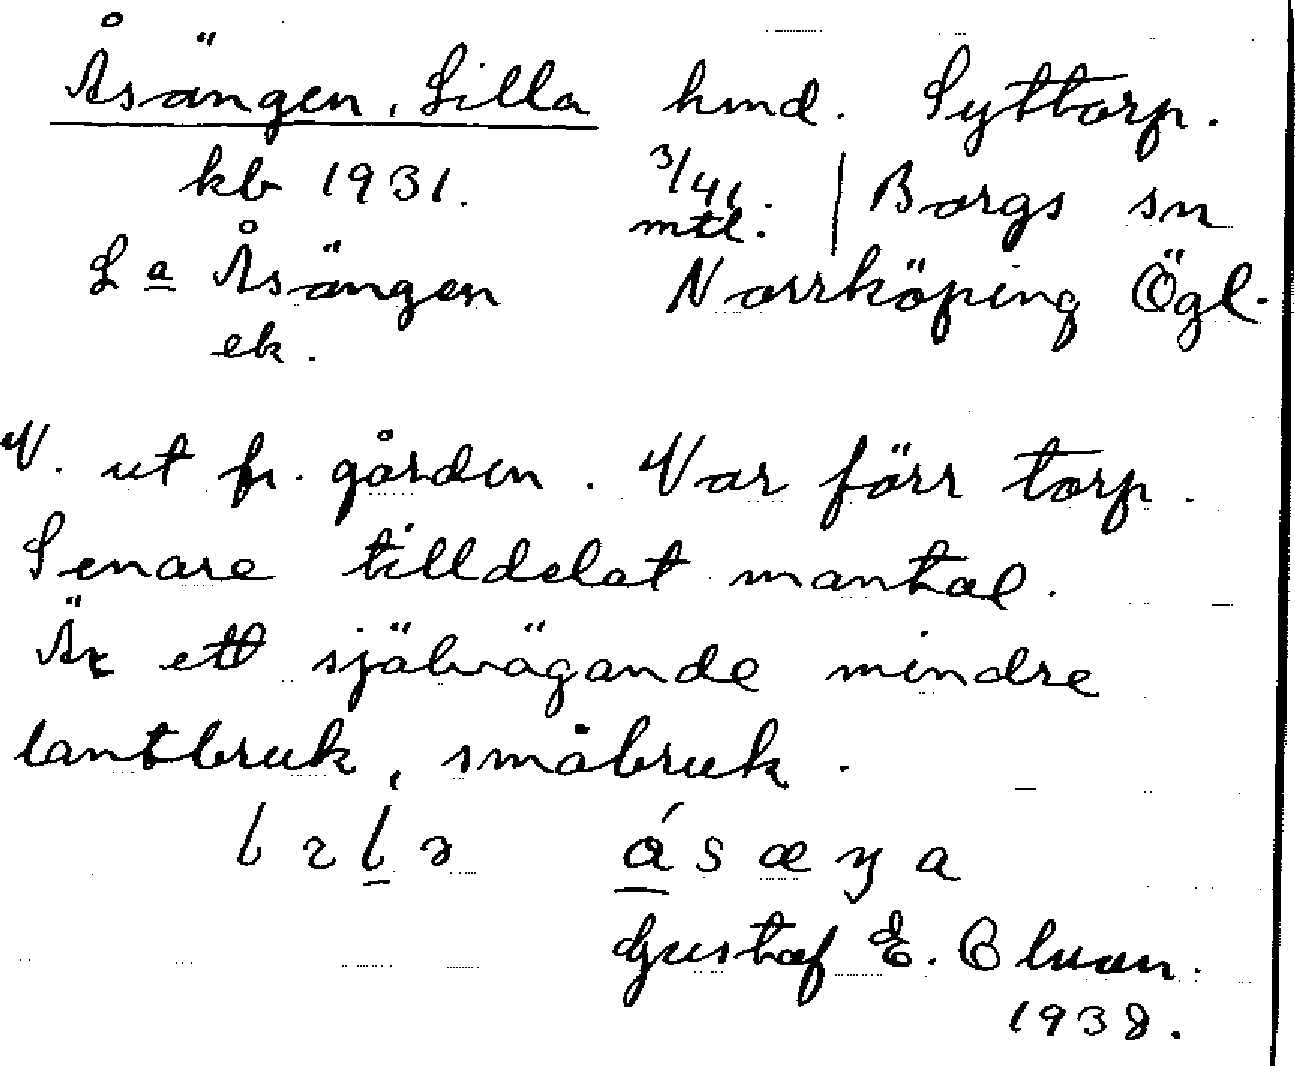 Åsängen, Lilla hmd. Syttorp.
kb 1931. 3/41 mtl. | Borgs sn
La Åsängen Norrköping Ögl.
ek.
V. ut fr. gården. Var förr torp.
Senare tilldelat mantal.
Är ett självägande mindre
lantbruk, småbruk.
Gustaf E.
1938.